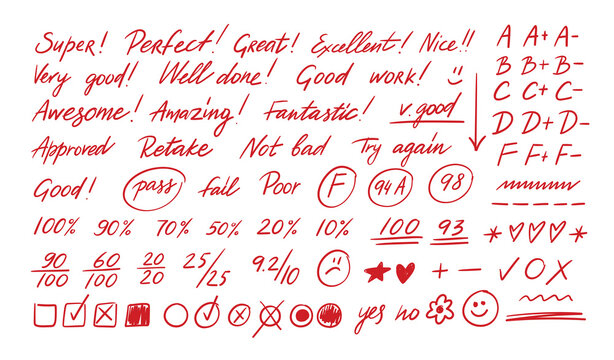 Super! Perfect! Great! Excellent! Nice!! A A+ A-
Very good! Well done! Good work! B B+ B-
C C+ C-
Awesome! Amazing! Fantastic! v. good D D+ D-
Approved Retake Not bad Try again F F+ F-
Good! pass fall Poor F 94A 98
100% 90% 70% 50% 20% 10% 100 93
90/100 60/100 20/20 25/25 9.2/10 + − ✓ O X
yes no